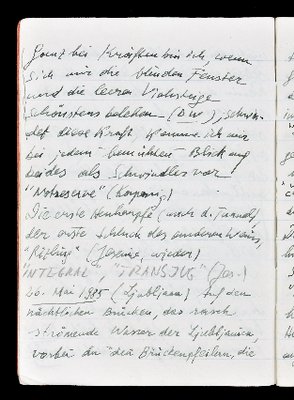 Ganz bei Kräften bin ich, wenn
sich mir die blinden Fenster
und die leeren
schönstens beleben (DW);
det diese Kraft, komme ich mir
bei jedem Blick auf
beides als Schwindler vor
"Notreserve"
Die erste (nach d. Tunnel,
der erste Schluck des anderen Weins,
"Rötling" (Jesenice, wieder)
"INTEGRAL", "TRANSJUG" (Jes.)
26. Mai 1985 (Ljubljana) Auf den
nächtlichen Brücken, das rasch
strömende Wasser der Ljubljanica,
vorbei an den Brückenpfeilern, die